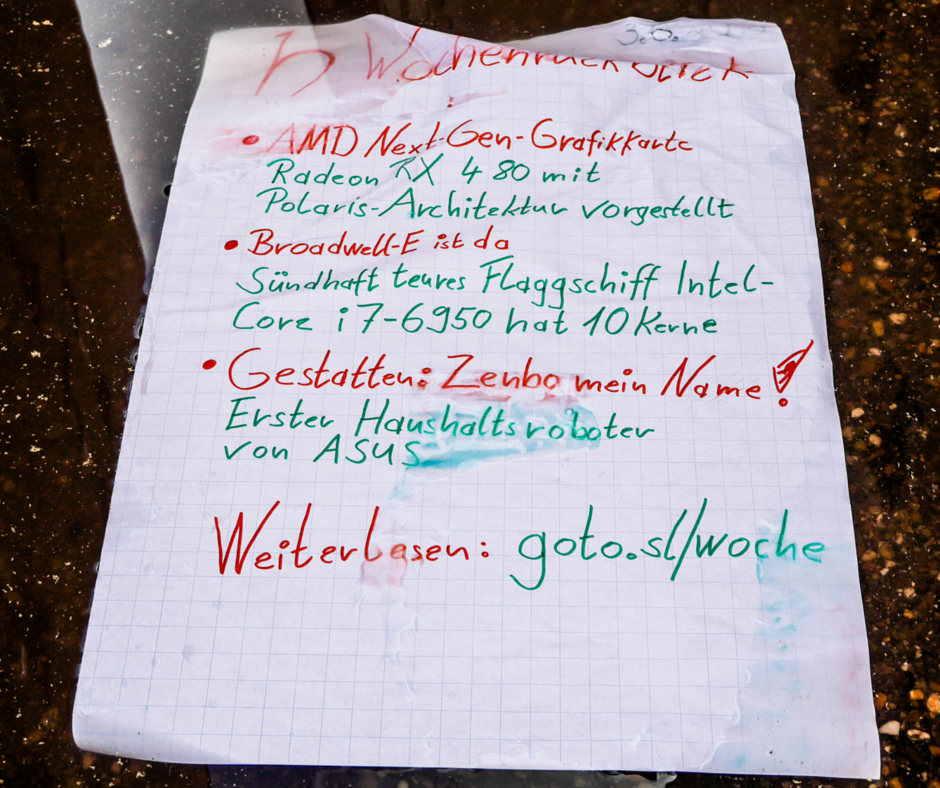 Wochenrückblick
• AMD Next-Gen-Grafikkarte
Radeon RX 480 mit
Polaris-Architektur vorgestellt
• Broadwell-E ist da
Sündhaft teures Flaggschiff Intel-
Core i7-6950 hat 10 Kerne
• Gestatten: Zenbo mein Name!
Erster Haushaltsroboter
von ASUS
Weiterlesen: goto.sl/woche